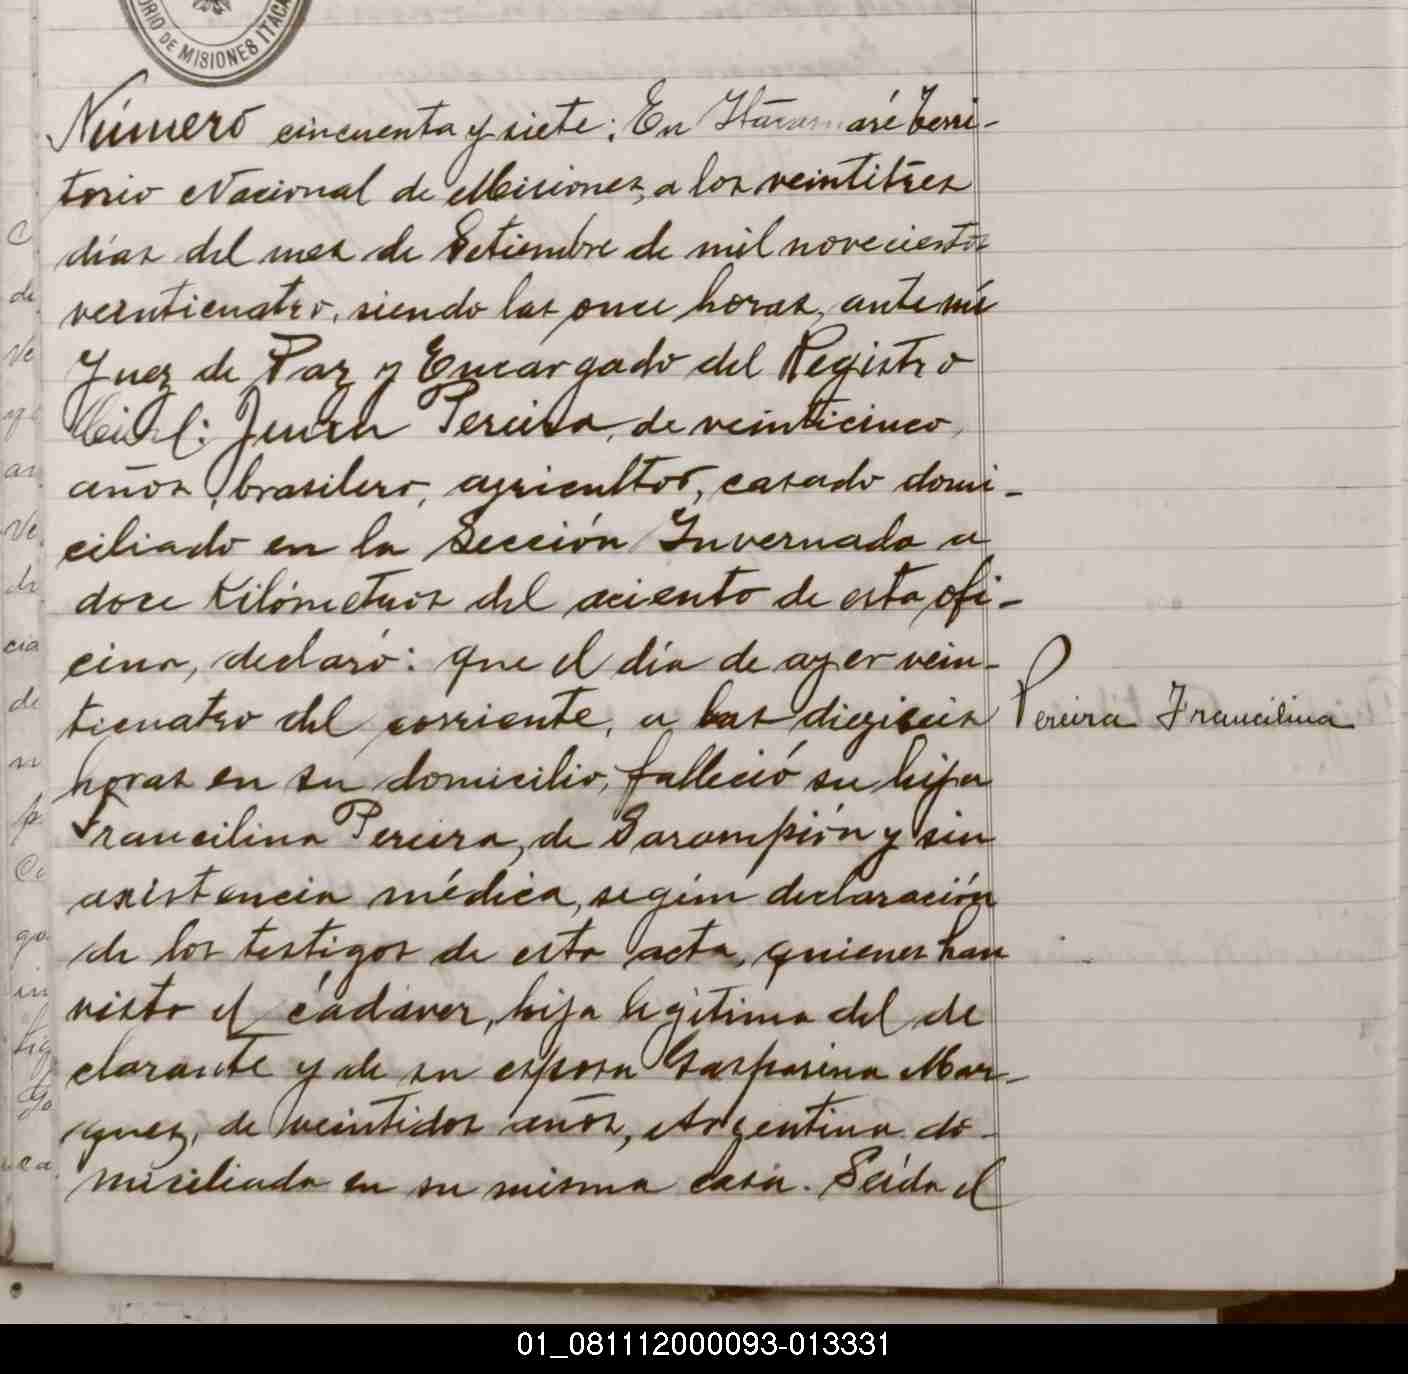 ORIO DE MISIONES ITACA
Número cincuenta y siete: En Itacaruaré Terri-
torio Nacional de Misiones, a los veintitres
días del mes de Setiembre de mil novecientos
veinticuatro, siendo las once horas, ante mi
Juez de Paz y Encargado del Registro
Civil: Juan Pereira, de veinticinco
años, brasilero, agricultor, casado domi-
ciliado en la Sección Invernada a
doce Kilómetros del aciento de esta ofi-
cina, declaró: que el día de ayer vein-
ticuatro del corriente, a las dieziseis
horas en su domicilio, falleció su hija
Francilina Pereira, de Sarampión y sin
asistencia médica, según declaración
de los testigos de esta acta, quienes han
visto el cadáver, hija legitima del de
clarante y de su esposa Gasparina Mar-
quez, de veintidos años, Argentina do-
miciliada en su misma casa. Leída el
Pereira Francilina
01_081112000093-013331